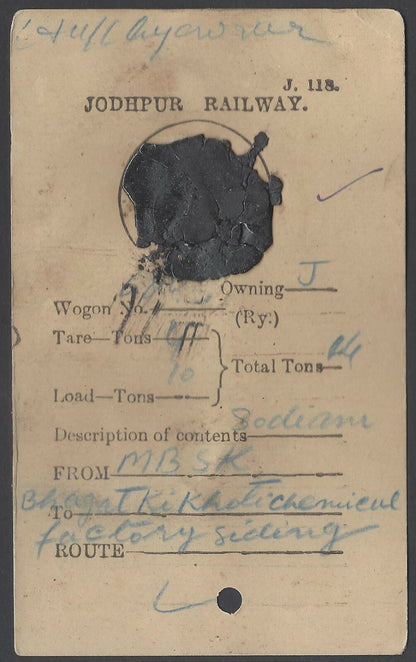 J. 118.
JODHPUR RAILWAY.
Owning J
Wogon No.
(Ry.)
Tare—Tons 4
Total Tons 14
10
Load—Tons
Description of contents Sodium
FROM MBSK
Bhagat Ki Khoti chemical
To
factory siding
ROUTE